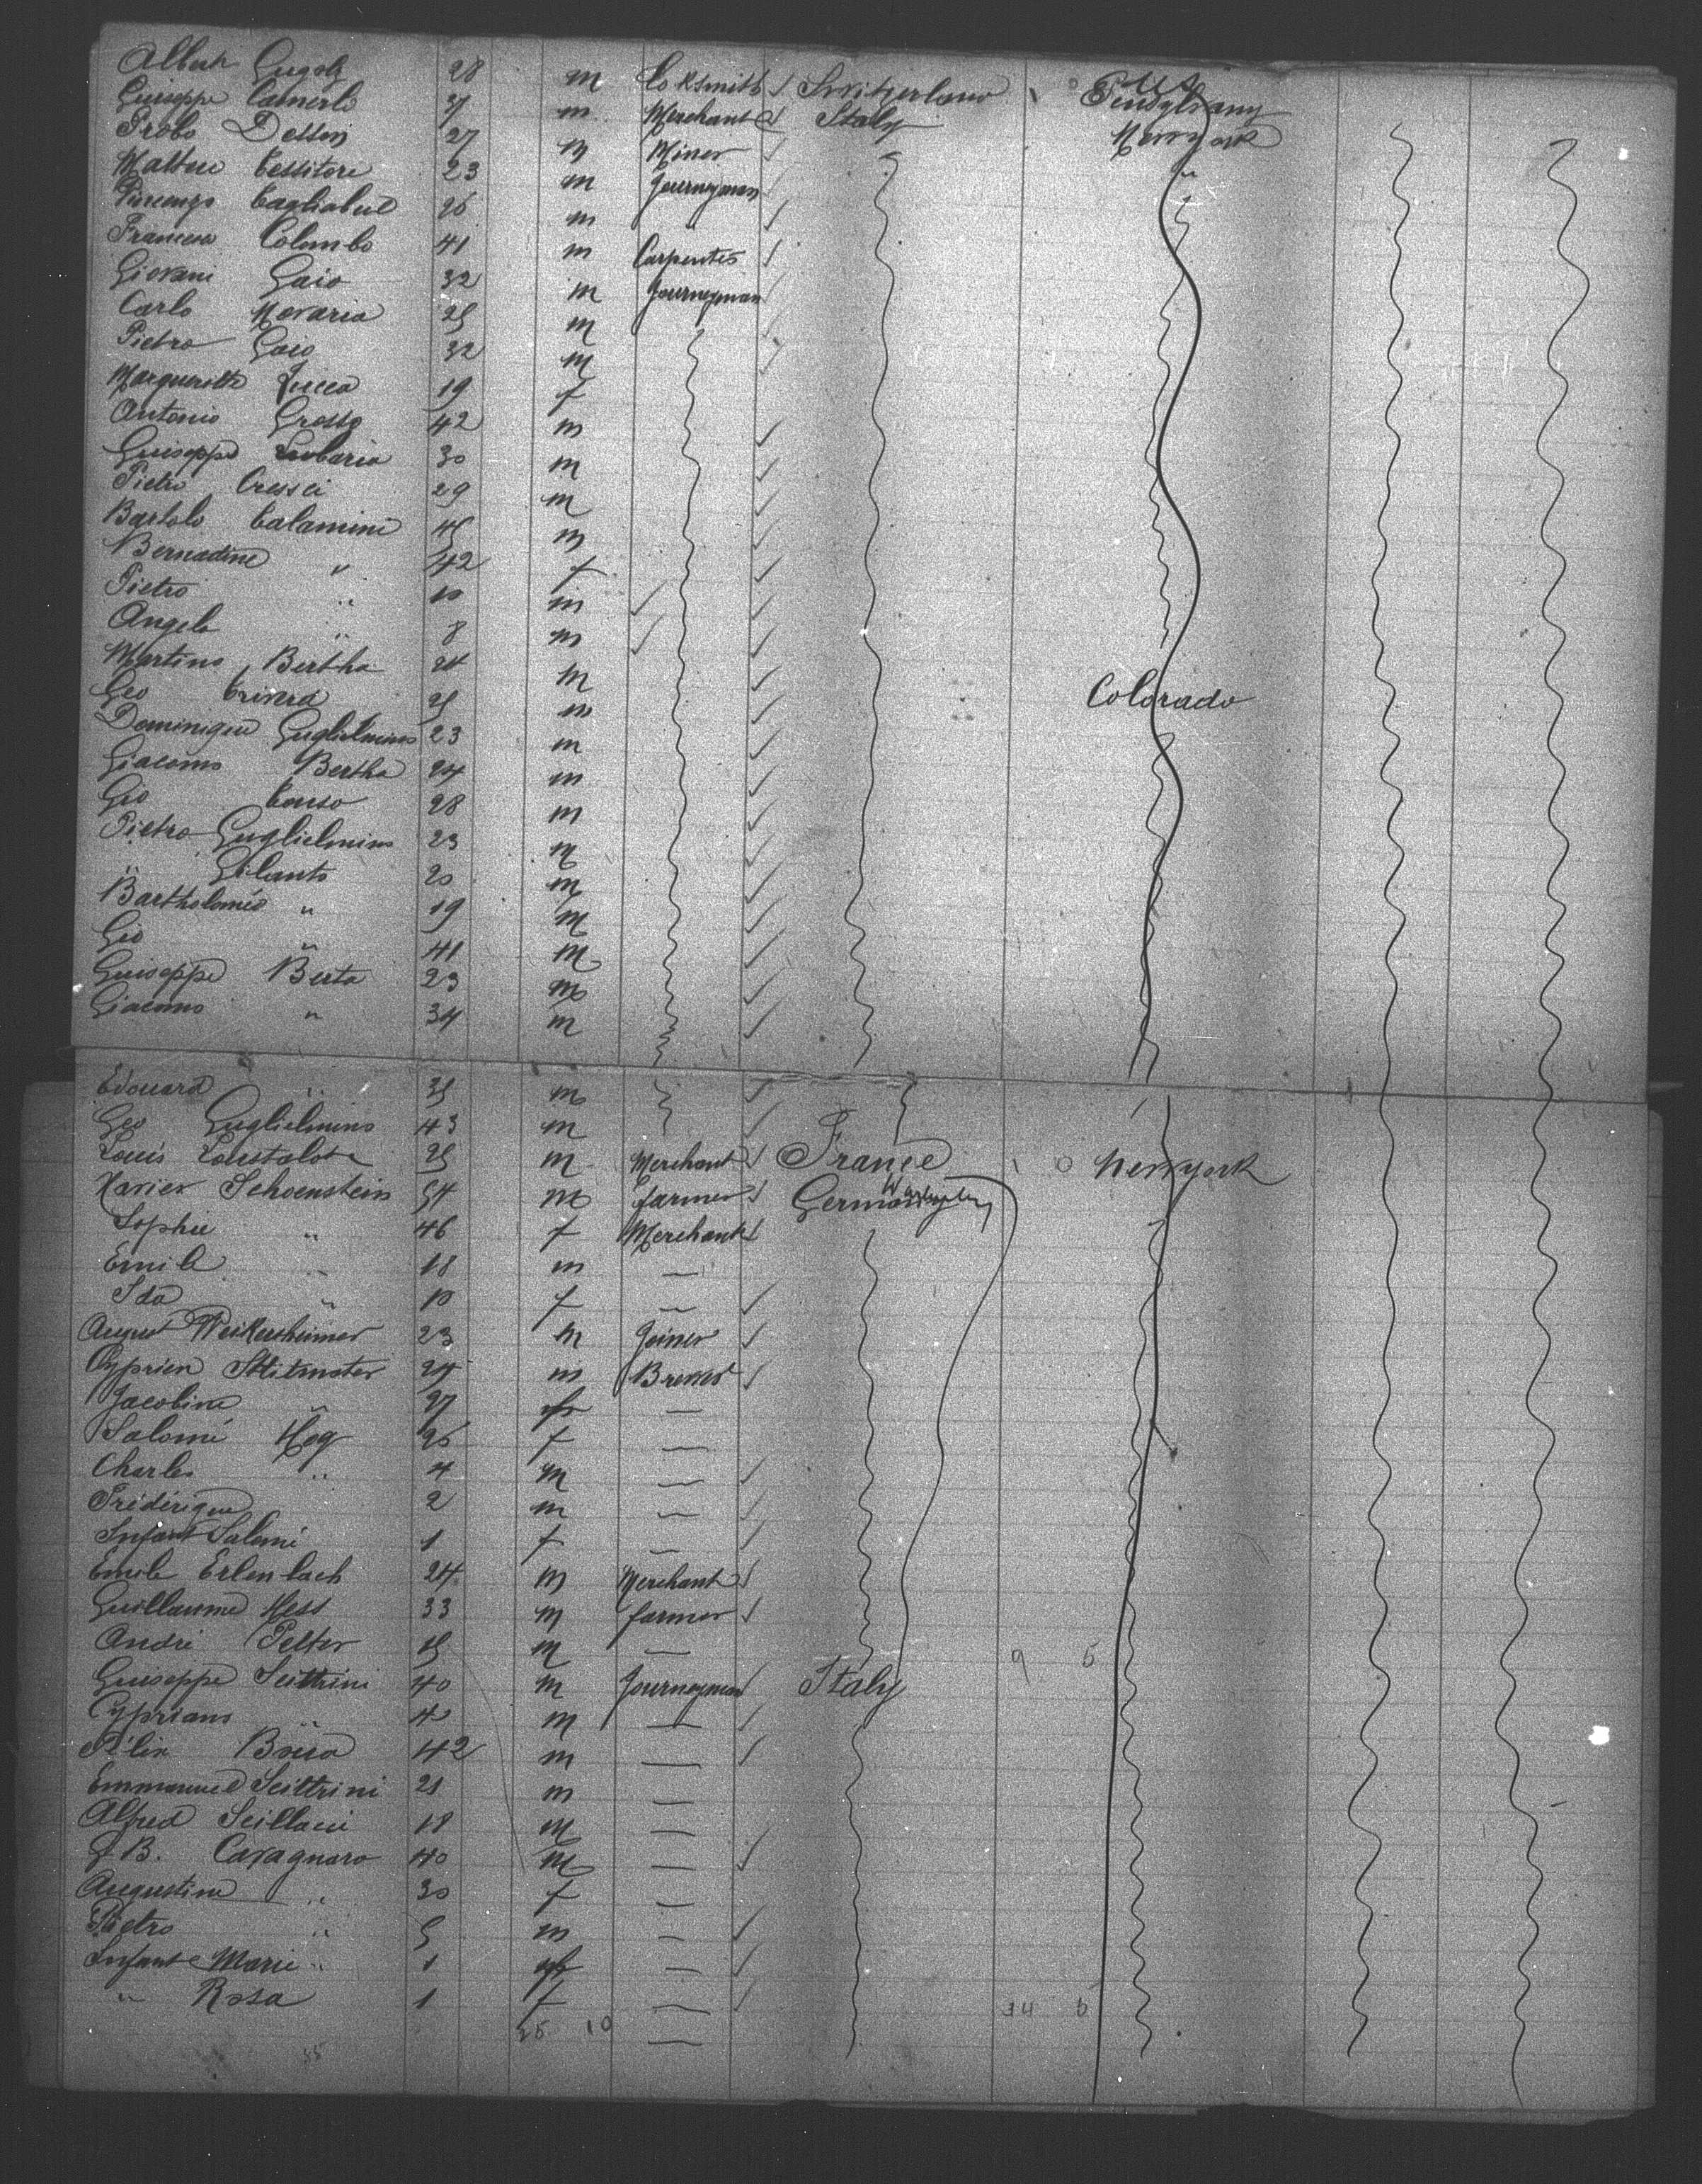 Albert 28 m Locksmith Switzerland U S
Guiseppe 31 m Merchant Italy Pensylvany
Probo Dessin 27 m Miner New york
Matteo Tessitore 23 m Journeyman "
Vincenzo Tagliabue 26 m
Francesco Colombo 41 m Carpenter
Giovani Gaio 32 m Journeyman
Carlo Novaria 25 m
Pietro Gaio 32 m
Marguerotte Zucca 19 f
Antonio Grosso 42 m
Guiseppe 30 m
Pietro Cressei 29 m
Bartolo Calamini 45 m
Bernadine " 42 f
Pietro " 10 m
Angelo " 8 m
Martino Bertha 24 m
Geo 25 m Colorado
Dominique Guglielmino 23 m
Giacomo Bertha 24 m
Gio 28 m
Pietro Guglielmino 23 m
" Gilanto 20 m
Bartholoméo " 19 m
Gio " 41 m
Guiseppe Berta 23 m
Giacomo " 34 m
Edouard " 35 m
Geo Guglielmino 43 m
Louis Loustalot 25 m Merchant France 1 0 New york
Xavier Schoenstein 54 m farmer Germany
Sophie " 46 f Merchant
Emile " 18 m —
Ida " 10 f —
August Weikersheimer 23 m Joiner
Cyprien 24 m Brewer
Jacobine " 27 f —
Salomé Heg 26 f —
Charles " 4 m —
Frédérique 2 m —
Infant Salomé 1 f —
Emile Erlenbach 24 m Merchant
Guillaume Hess 33 m farmer
André Pelter 15 m — 9 5
Guiseppe Scittrini 40 m Journeyman Italy
Cypriano " 40 m —
Félix 42 m —
Emmanuel Scittrini 21 m —
Alfred Scillaci 18 m —
G B. Cavagnaro 40 m —
Augustine " 30 f —
Pietro " 5 m —
Infant Marie " 1 f —
" Rosa 1 f — 34 6
25 10 —
35